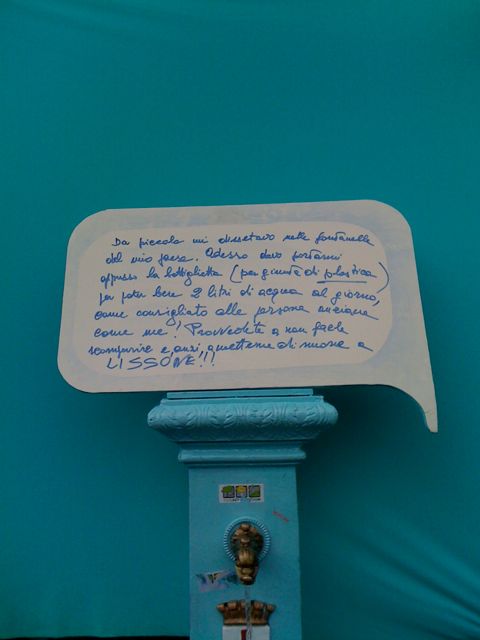 Da piccola mi dissetavo nelle fontanelle
del mio paese. Adesso devo portarmi
appresso la bottiglietta (per giunta di plastica)
per poter bere 2 litri di acqua al giorno,
come consigliato alle persone anziane
come me! Provvedete a non farle
scomparire e, anzi, a metterne di nuove a
LISSONE!!!